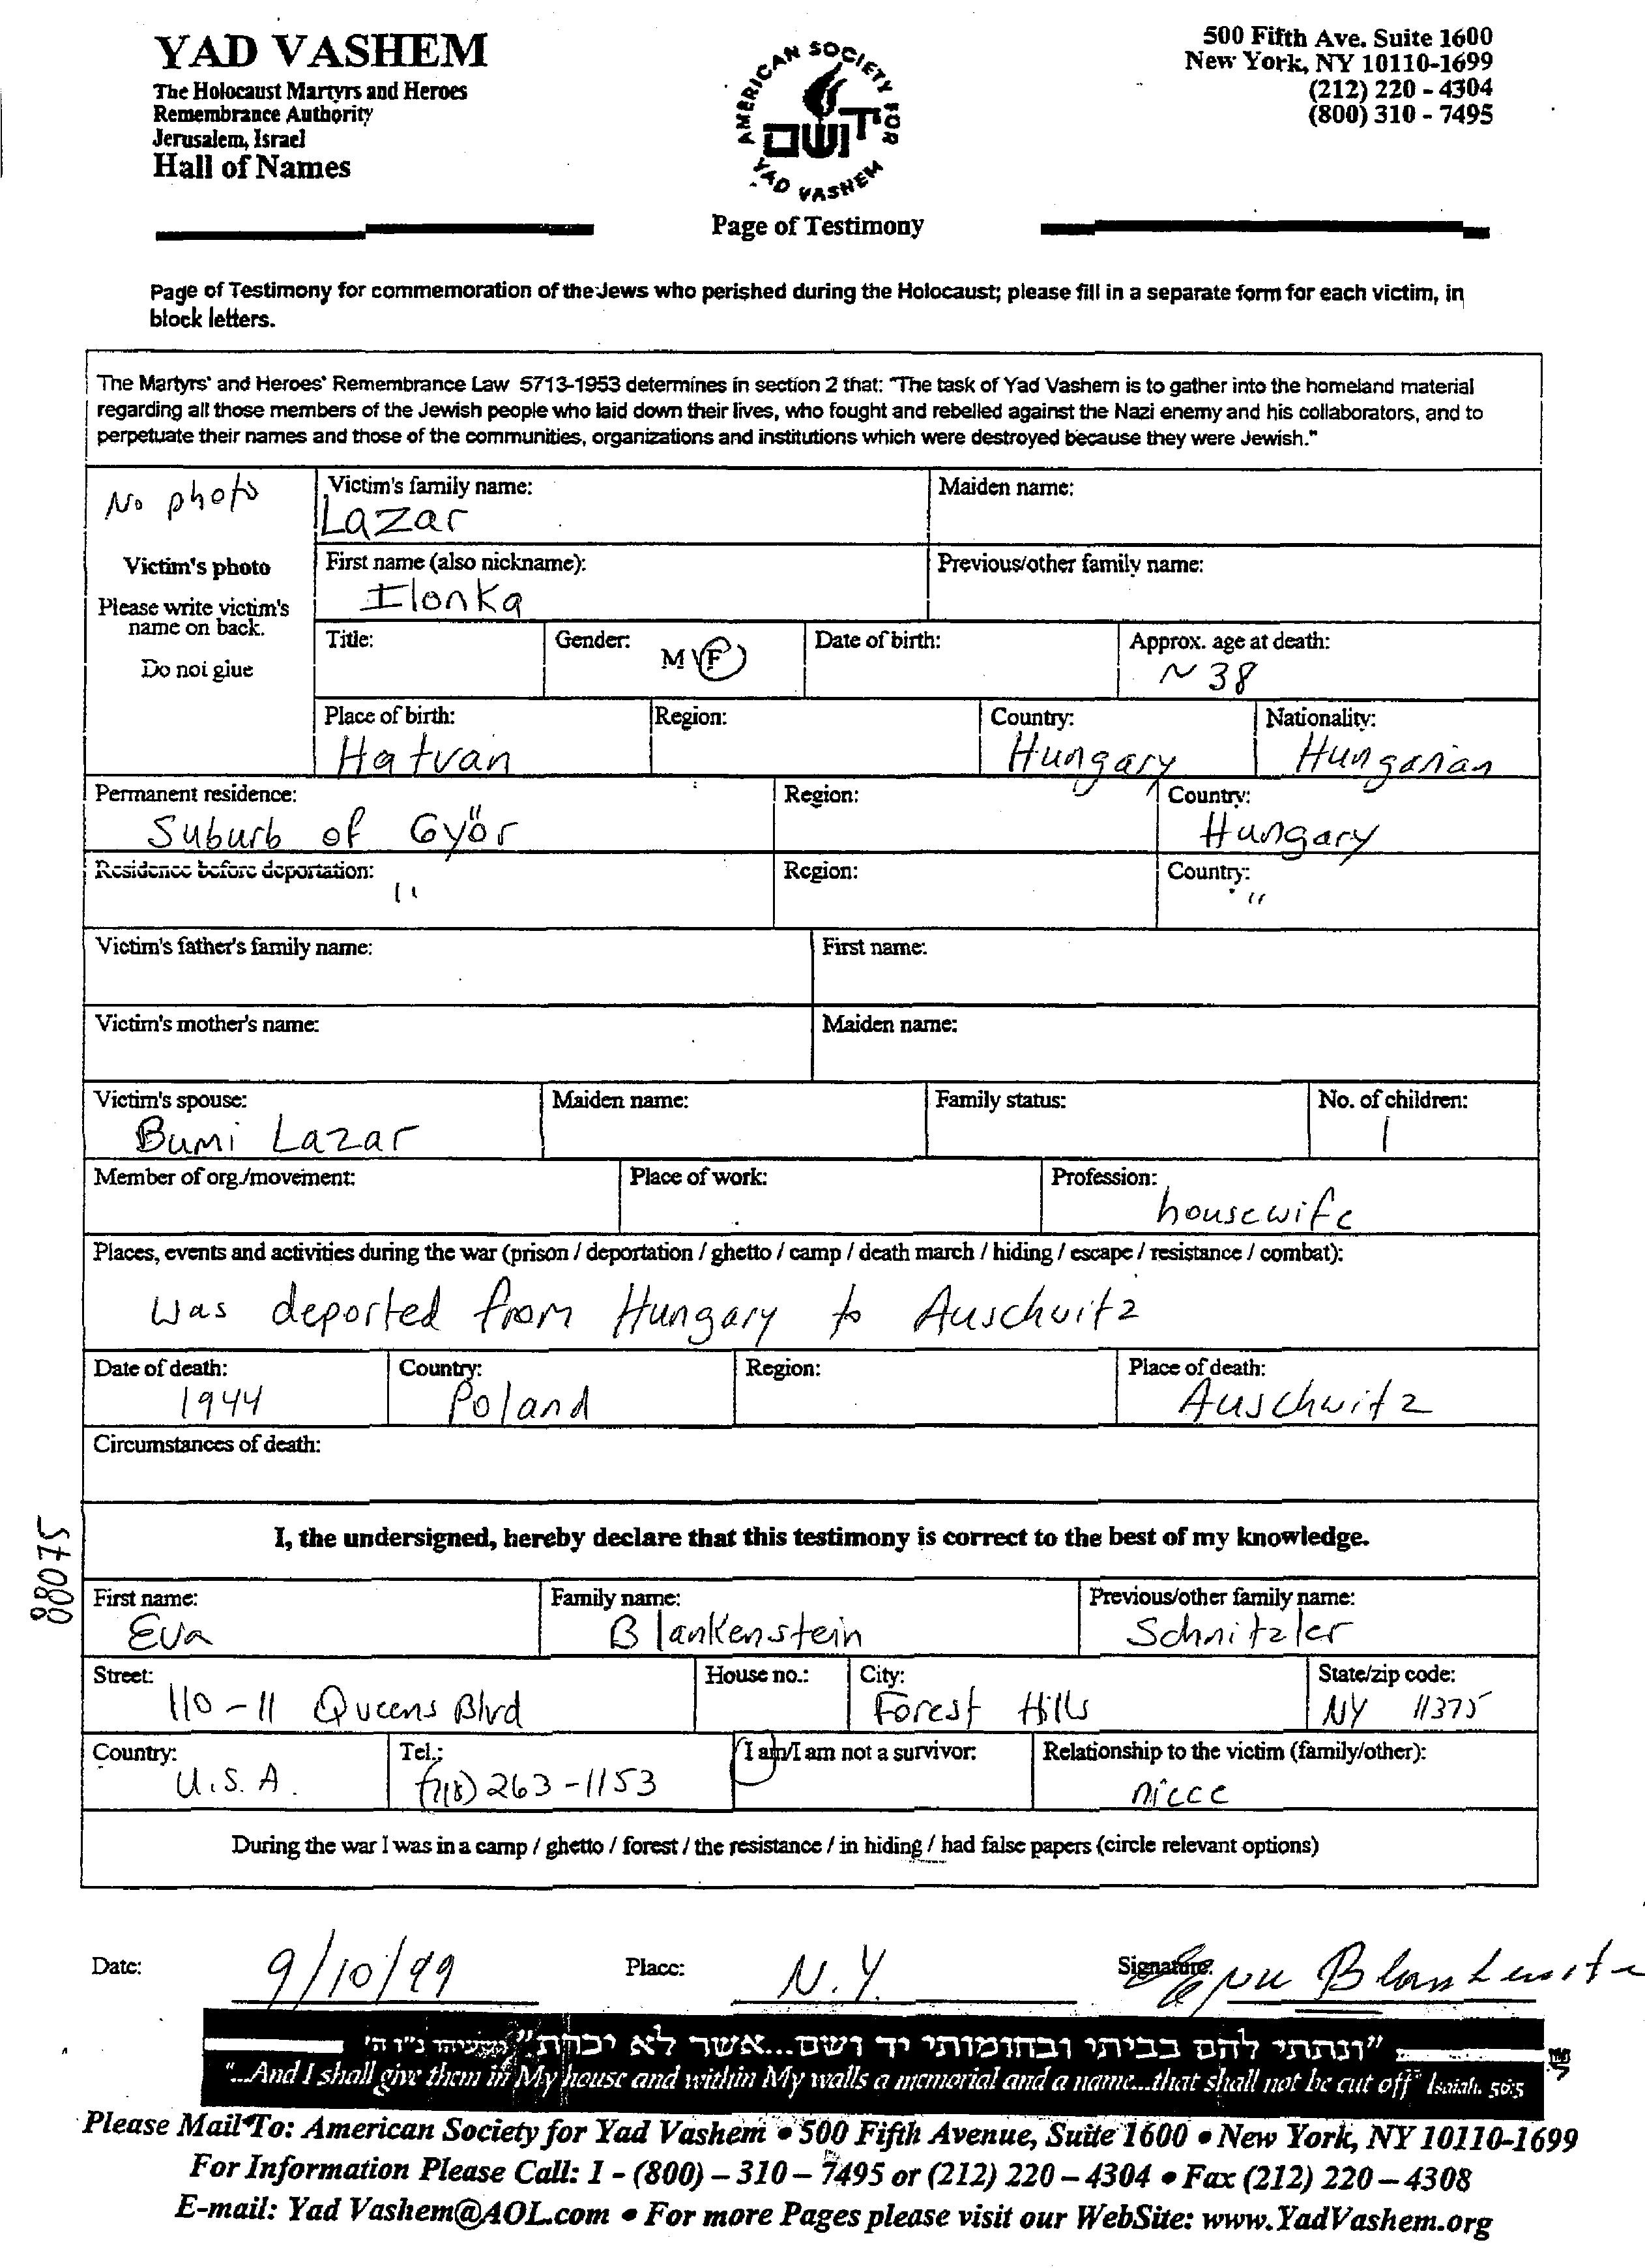 YAD VASHEM
The Holocaust Martyrs and Heroes
Remembrance Authority
Jerusalem, Israel
Hall of Names
AMERICAN SOCIETY FOR
יד ושם
YAD VASHEM
500 Fifth Ave. Suite 1600
New York, NY 10110-1699
(212) 220 - 4304
(800) 310 - 7495
Page of Testimony
Page of Testimony for commemoration of the Jews who perished during the Holocaust; please fill in a separate form for each victim, in
block letters.
The Martyrs' and Heroes' Remembrance Law 5713-1953 determines in section 2 that: "The task of Yad Vashem is to gather into the homeland material
regarding all those members of the Jewish people who laid down their lives, who fought and rebelled against the Nazi enemy and his collaborators, and to
perpetuate their names and those of the communities, organizations and institutions which were destroyed because they were Jewish."
No photo
Victim's photo
Please write victim's
name on back.
Do not glue
Victim's family name: Maiden name:
Lazar
First name (also nickname): Previous/other family name:
Ilonka
Title: Gender: M/F Date of birth: Approx. age at death:
~ 38
Place of birth: Region: Country: Nationality:
Hatvan Hungary Hungarian
Permanent residence: Region: Country:
Suburb of Győr Hungary
Residence before deportation: Region: Country:
" "
Victim's father's family name: First name:
Victim's mother's name: Maiden name:
Victim's spouse: Maiden name: Family status: No. of children:
Bumi Lazar 1
Member of org./movement: Place of work: Profession:
housewife
Places, events and activities during the war (prison / deportation / ghetto / camp / death march / hiding / escape / resistance / combat):
was deported from Hungary to Auschwitz
Date of death: Country: Region: Place of death:
1944 Poland Auschwitz
Circumstances of death:
88075
I, the undersigned, hereby declare that this testimony is correct to the best of my knowledge.
First name: Family name: Previous/other family name:
Eva Blankenstein Schnitzler
Street: House no.: City: State/zip code:
110-11 Queens Blvd Forest Hills NY 11375
Country: Tel.: I am/I am not a survivor: Relationship to the victim (family/other):
U.S.A. (718) 263-1153 niece
During the war I was in a camp / ghetto / forest / the resistance / in hiding / had false papers (circle relevant options)
Date: 9/10/99 Place: N.Y. Signature:
"ונתתי להם בביתי ובחומותי יד ושם...אשר לא יכרת" ישעיהו נ"ו ה'
"...And I shall give them in My house and within My walls a memorial and a name...that shall not be cut off" Isaiah. 56:5
Please Mail To: American Society for Yad Vashem • 500 Fifth Avenue, Suite 1600 • New York, NY 10110-1699
For Information Please Call: 1 - (800) – 310 – 7495 or (212) 220 – 4304 • Fax (212) 220 – 4308
E-mail: Yad Vashem@AOL.com • For more Pages please visit our WebSite: www.YadVashem.org